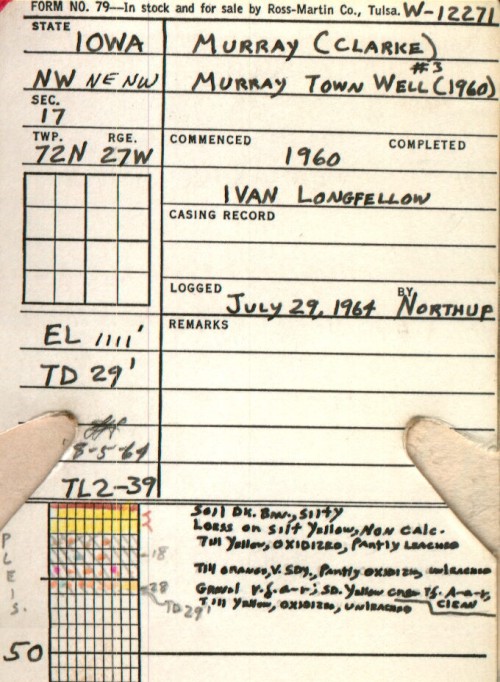 FORM NO. 79—In stock and for sale by Ross-Martin Co., Tulsa. W-12271
STATE
IOWA MURRAY (CLARKE)
#3
NW NE NW MURRAY TOWN WELL (1960)
SEC.
17
TWP. RGE. COMMENCED COMPLETED
72N 27W 1960
IVAN LONGFELLOW
CASING RECORD
LOGGED BY
JULY 29, 1964 NORTHUP
EL 1111' REMARKS
TD 29'
8-5-64
TL2-39
PLEIS.
SOIL DK. BRN., SILTY
LOESS OR SILT YELLOW, NON CALC.
TILL YELLOW, OXIDIZED, PARTLY LEACHED
18
TILL ORANGE, V. SDY., PARTLY OXIDIZED, UNLEACHED
28
GRAVEL V.F. A-R; SD. YELLOW A-R,
CLEAN
TILL YELLOW, OXIDIZED, UNLEACHED
TD 29'
50